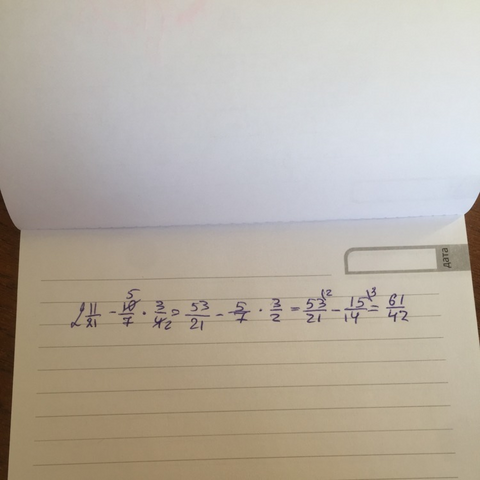 дата
2 11/21 - 10/7 5 · 3/4 2 = 53/21 - 5/7 · 3/2 = 53/21 |2 - 15/14 |3 = 61/42